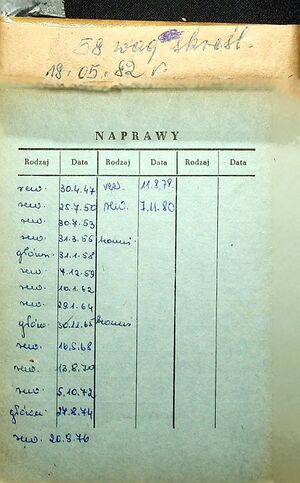 58 wag skreśl.
18.05.82 r.
NAPRAWY
Rodzaj Data Rodzaj Data Rodzaj Data
rew. 30.4.47 rew. 11.8.78
rew. 25.7.50 rew. 7.11.80
rew. 30.7.53
rew. 31.3.55
główn. 31.1.58
rew. 7.12.59
rew. 10.1.62
rew. 29.1.64
główn. 30.11.65
rew. 16.5.68
rew. 13.8.70
rew. 5.10.72
główn. 27.8.74
rew. 20.9.76